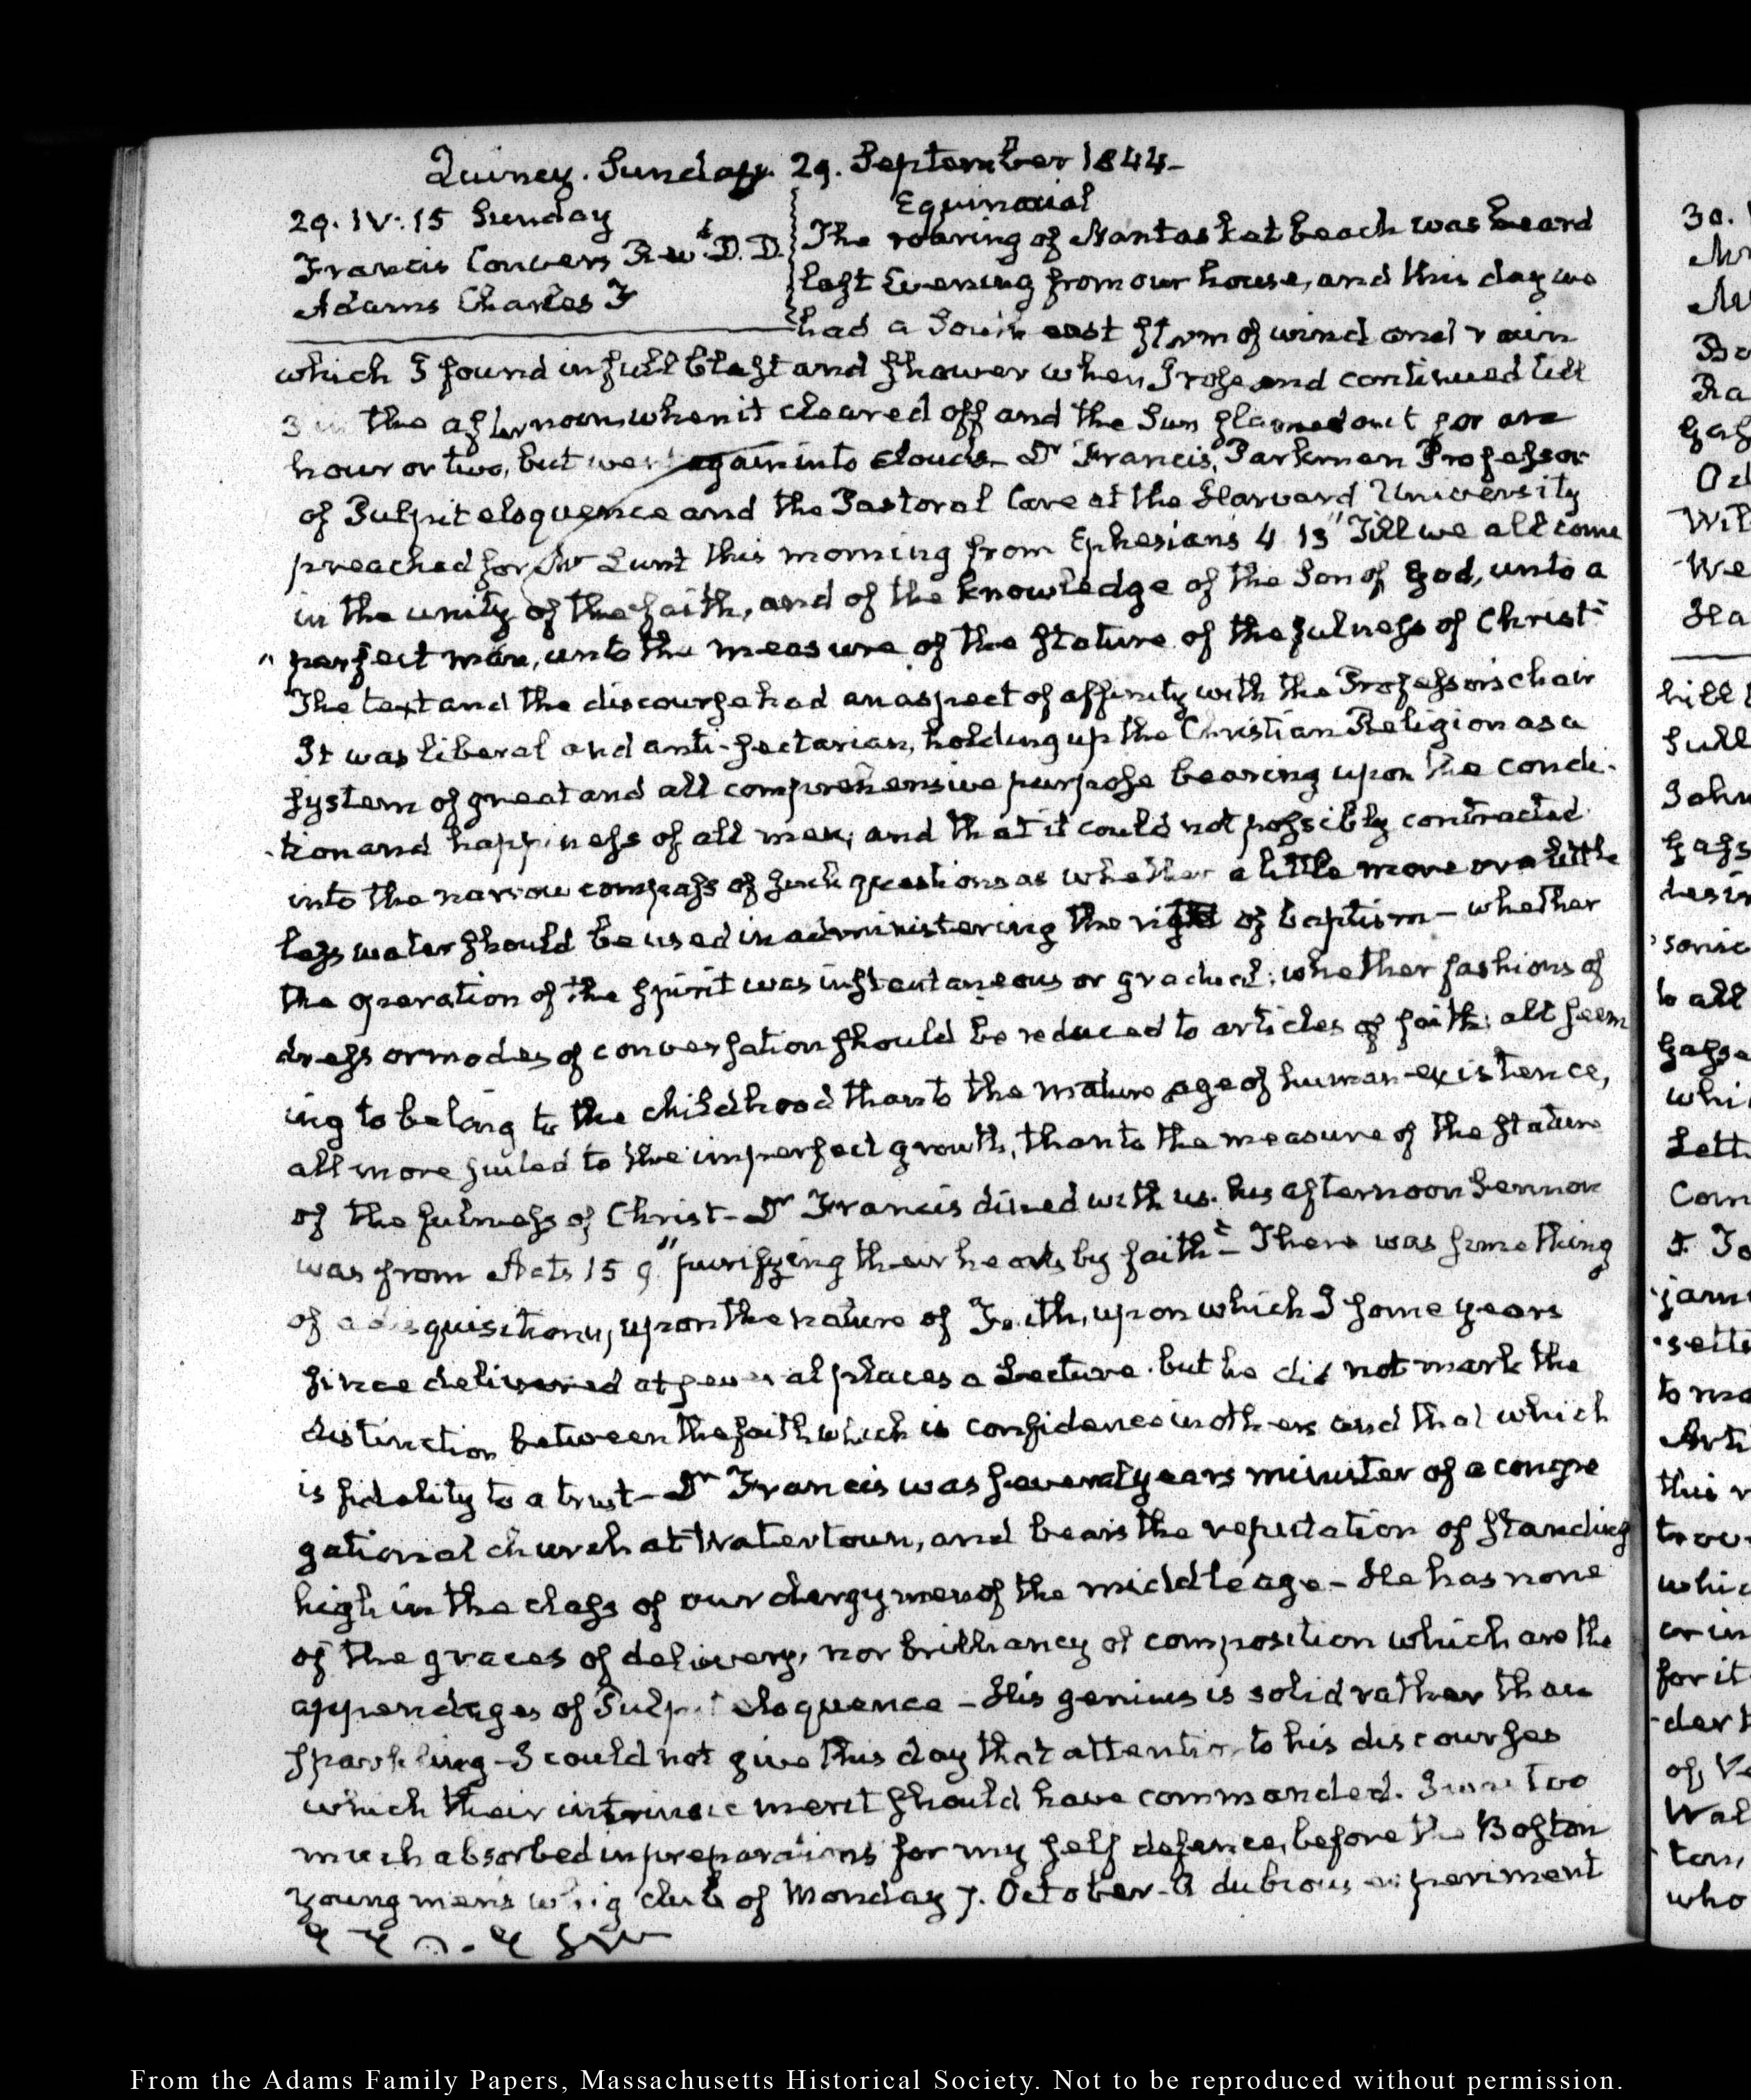 Quincy. Sunday 29. September 1844-
Equinoxial
29. IV:15 Sunday
Francis Convers Revd. D.D.
Adams Charles F
The roaring of Nantasket beach was heard
last Evening from our house, and this day we
had a South east storm of wind and rain
which I found in full blast and shower when I rose and continued till
3 in the afternoon when it cleared off and the Sun flamed out for an
hour or two, but went again into clouds- Dr Francis, Parkman Professor
of Pulpit eloquence and the Pastoral Care at the Harvard University
preached for Mr Lunt this morning from Ephesians 4 13 "Till we all come
in the unity of the faith, and of the knowledge of the Son of God, unto a
" perfect man, unto the measure of the stature of the fulness of Christ"
The text and the discourse had an aspect of affinity with the Professor's chair
It was liberal and anti-sectarian, holding up the Christian Religion as a
system of great and all comprehensive purpose bearing upon the condi-
-tion and happiness of all men; and that it could not possibly contracted
into the narrow compass of such questions as whether a little more or a little
less water should be used in administering the right of baptism - whether
the operation of the Spirit was instantaneous or gradual; whether fashions of
dress or modes of conversation should be reduced to articles of faith; all seem
ing to belong to the childhood than to the mature age of human existence,
all more suited to the imperfect growth, than to the measure of the stature
of the fulness of Christ- Dr Francis dined with us. his afternoon Sermon
was from Acts 15 9 "purifying their hearts by faith"- There was something
of a disquisition, upon the nature of Faith, upon which I some years
since delivered at several places a Lecture. but he did not mark the
distinction between the faith which is confidence in others and that which
is fidelity to a trust- Dr Francis was several years minister of a congre
gational church at Watertown, and bears the reputation of standing
high in the class of our clergymen of the middle age- He has none
of the graces of delivery, nor brilliancy of composition which are the
appendages of Pulpit eloquence - His genius is solid rather than
sparkling- I could not give this day that attention to his discourses
which their intrinsic merit should have commanded. I was too
much absorbed in preparations for my self defence, before the Boston
young men's whig club of Monday 7. October- A dubious experiment
From the Adams Family Papers, Massachusetts Historical Society. Not to be reproduced without permission.